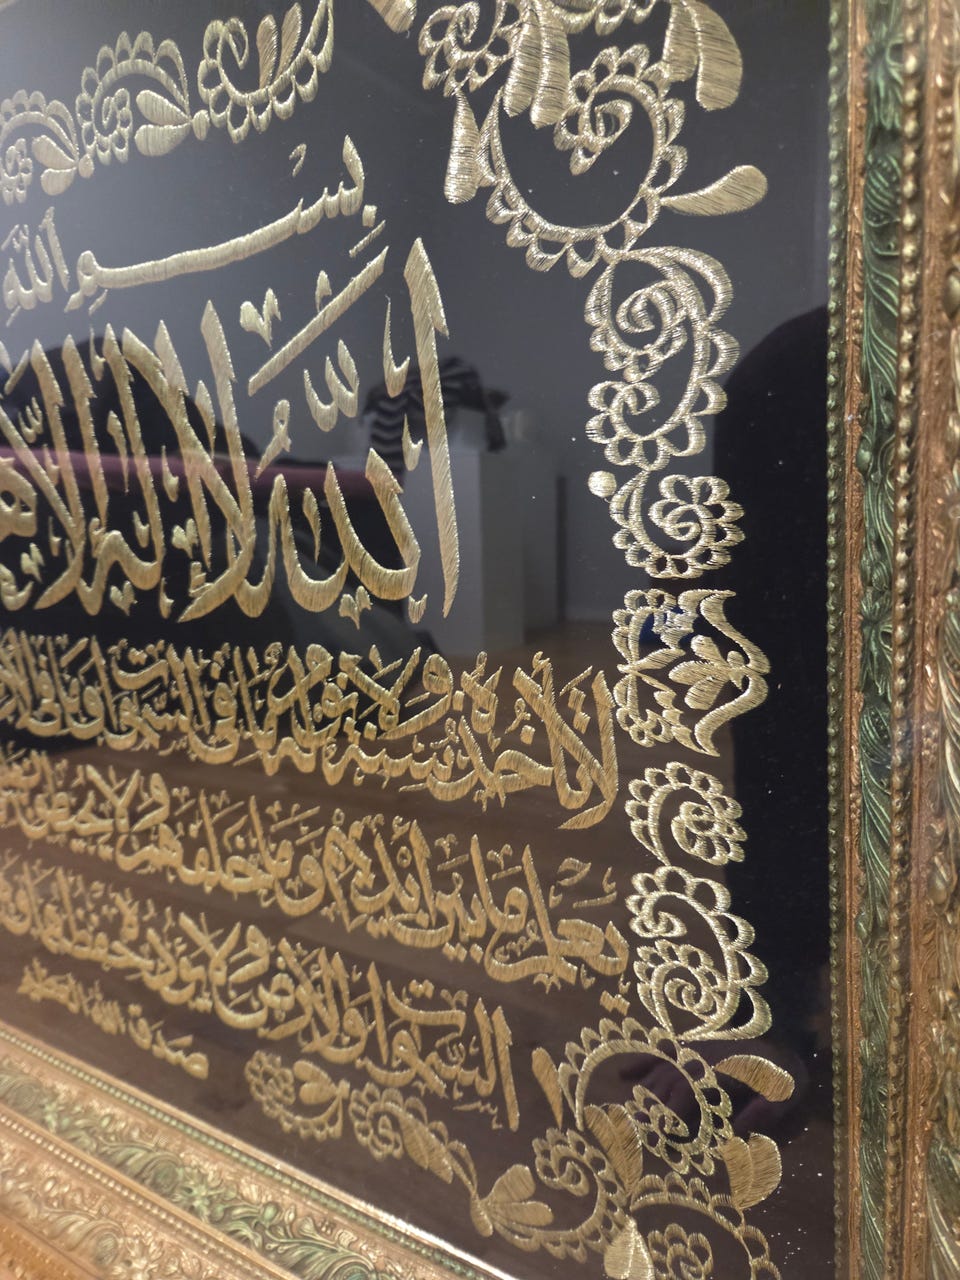 بِسْمِ اللهِ
اَللّٰهُ لَا إِلٰهَ إِلَّا هُوَ
لَا تَأْخُذُهُ سِنَةٌ وَلَا نَوْمٌ لَهُ مَا فِي السَّمٰوَاتِ وَمَا فِي الْأَرْضِ
يَعْلَمُ مَا بَيْنَ أَيْدِيهِمْ وَمَا خَلْفَهُمْ وَلَا يُحِيطُونَ
السَّمٰوَاتِ وَالْأَرْضَ وَلَا يَئُودُهُ حِفْظُهُمَا وَهُوَ
صدق الله العظيم